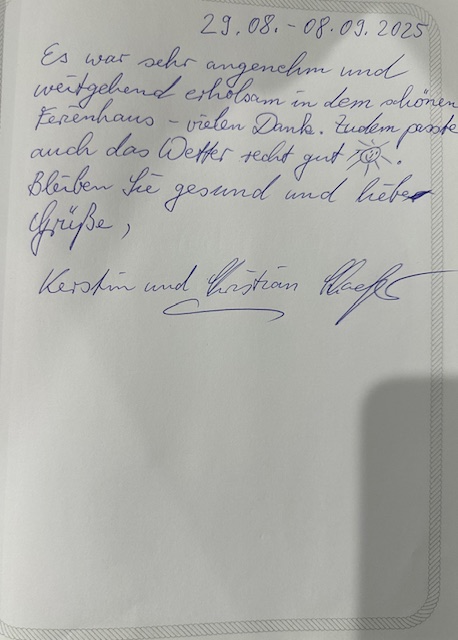 29.08.-08.09.2025
Es war sehr angenehm und
weitgehend erholsam in dem schönen
Ferienhaus - vielen Dank. Zudem passte
auch das Wetter recht gut .
Bleiben Sie gesund und liebe
Grüße,
Kerstin und Christian